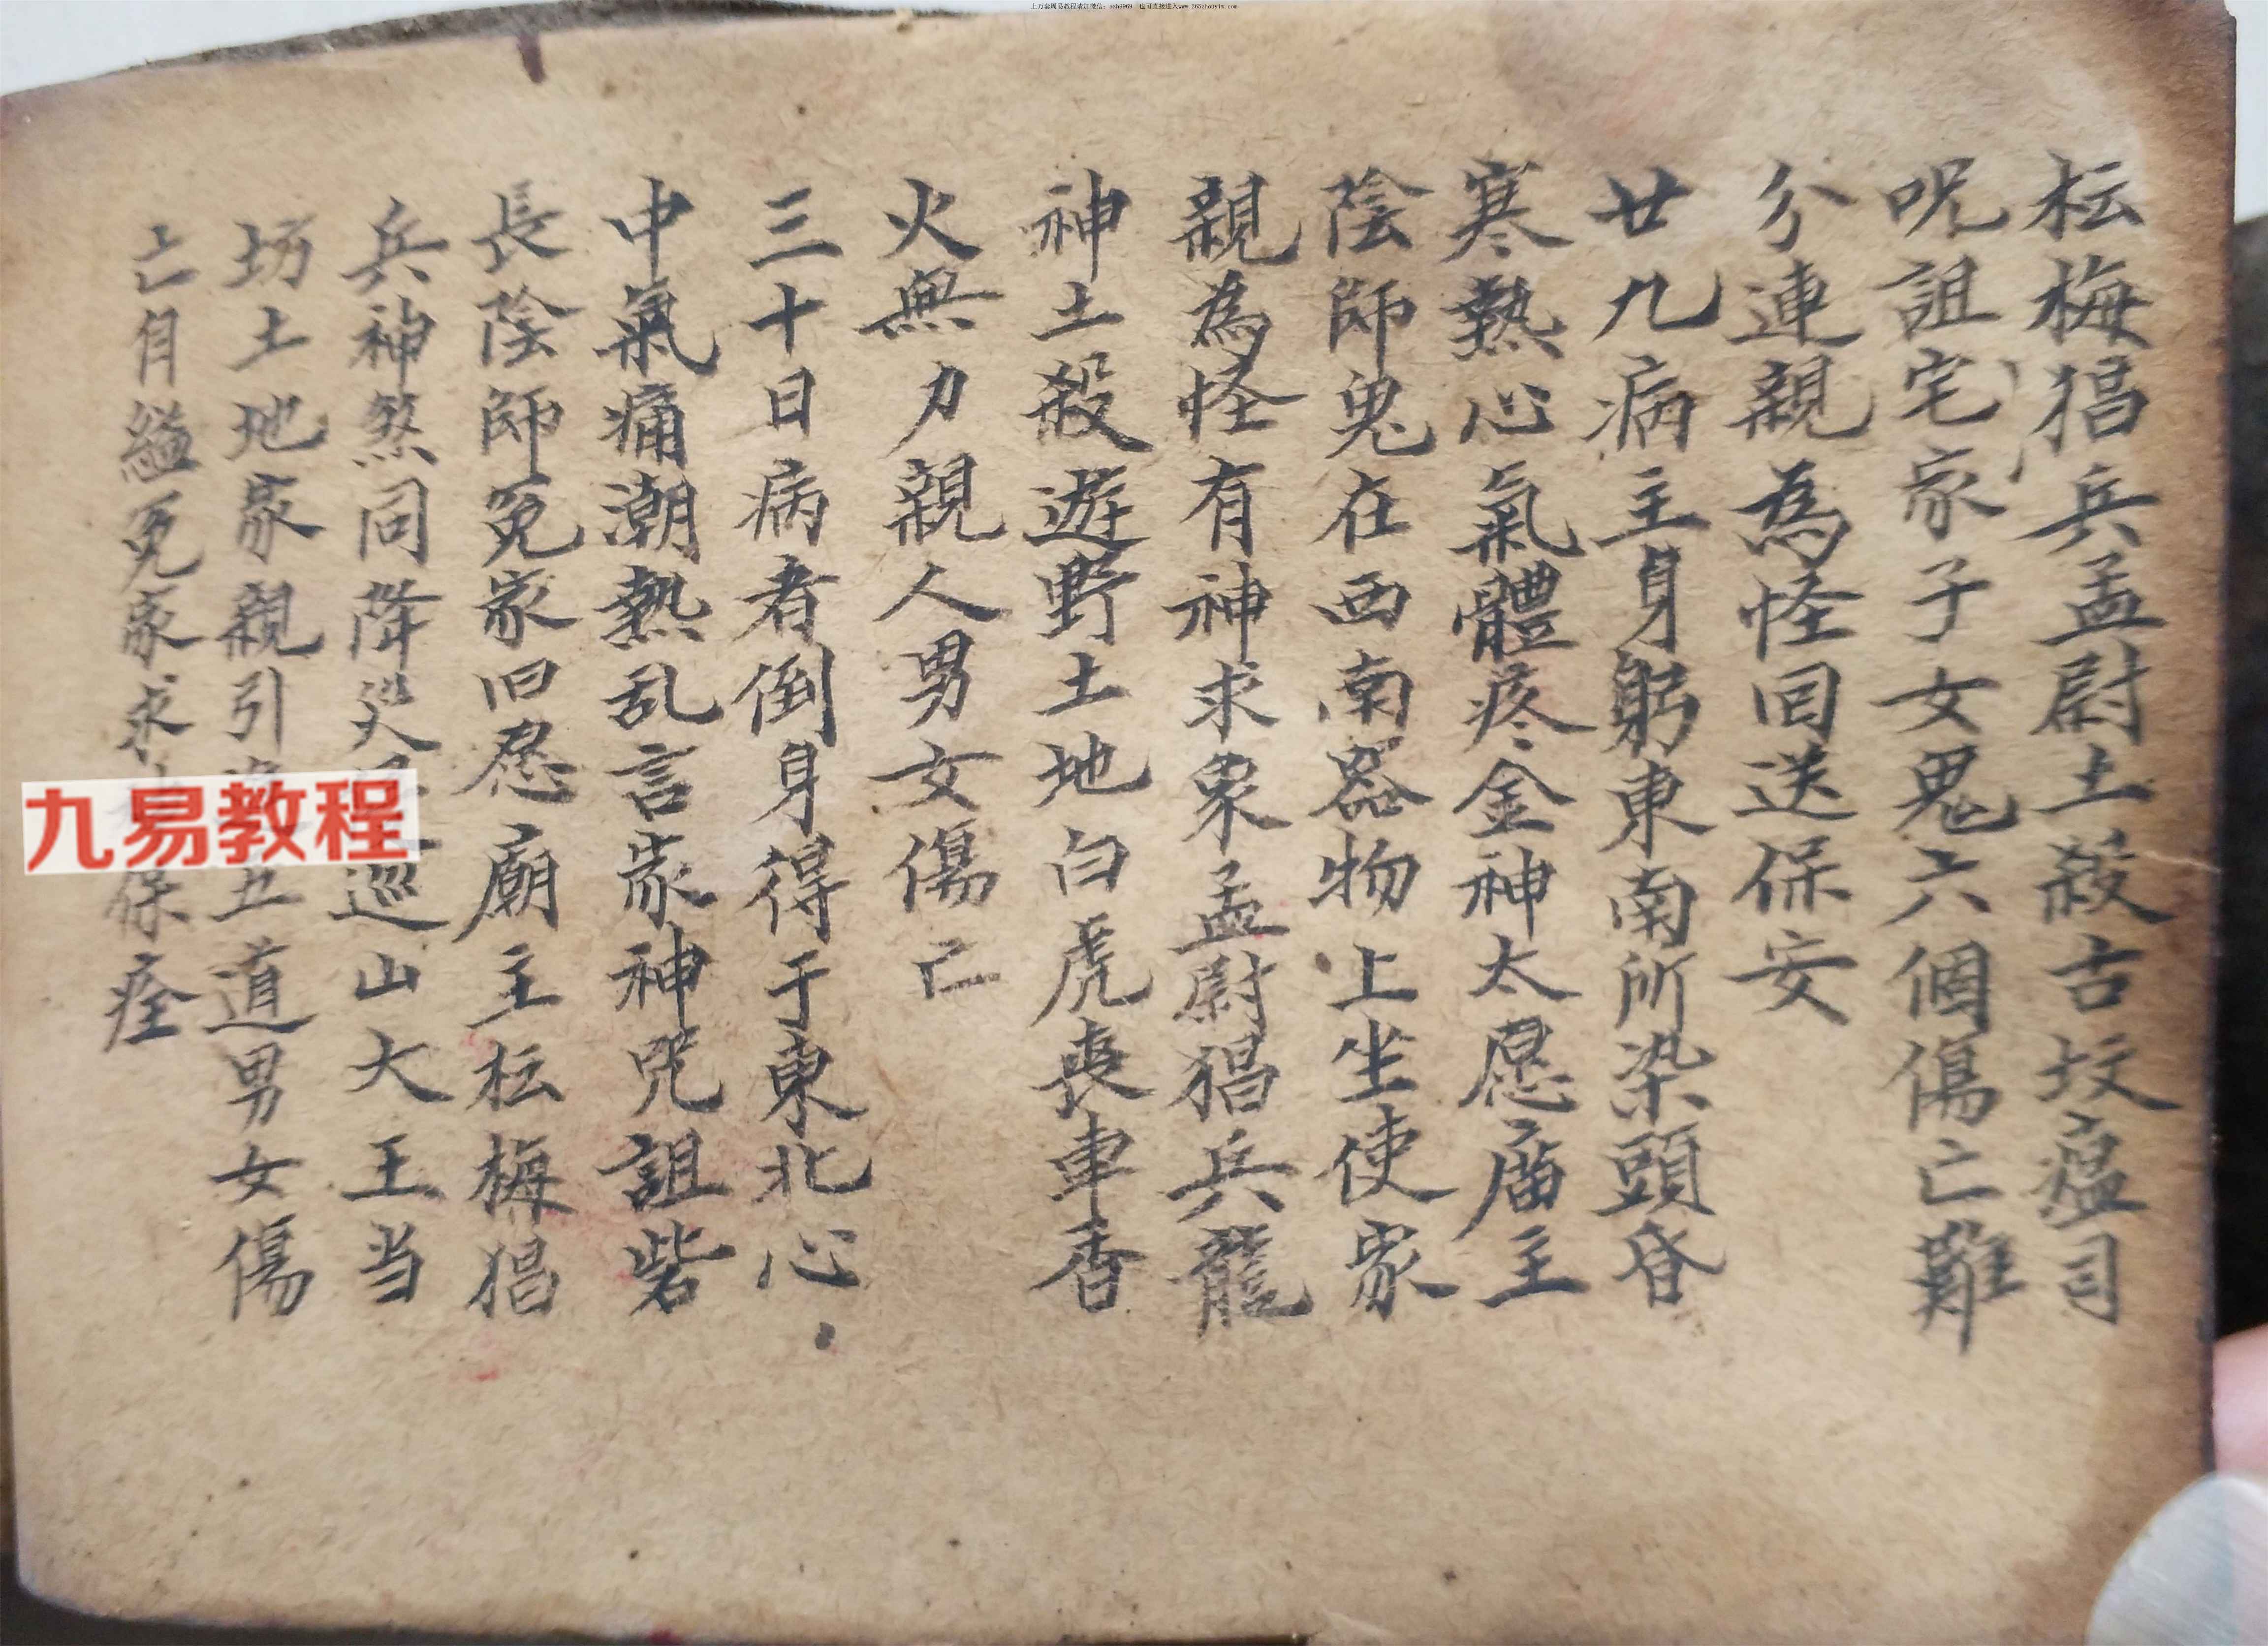 上万套周易教程请加微信:
也可直接进入www.265zhouyiw.com
枟梅猖兵孟尉土殺古坟瘟司
呪詛宅家子女鬼六個傷亡難
分連親為怪回送保安
廿九病主身躬東南所染頭昏
寒熱心氣體疼金神太愿庙主
陰師鬼在西南器物上坐使家
親為怪有神求象孟尉猖兵龍
神土殺遊野土地白虎喪車香
火無力親人男女傷亡
三十日病者倒身得于東北心
中氣痛潮熱乱言家神咒詛砦
長陰師冤家旧愿廟主枟梅猖
兵神煞同降災巡山大王当
坊土地家親引五道男女傷
亡自縊冤家求保痊
九易教程